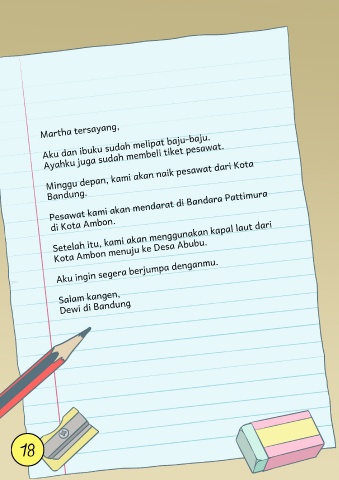 Martha tersayang,
Aku dan ibuku sudah melipat baju-baju.
Ayahku juga sudah membeli tiket pesawat.
Minggu depan, kami akan naik pesawat dari Kota
Bandung.
Pesawat kami akan mendarat di Bandara Pattimura
di Kota Ambon.
Setelah itu, kami akan menggunakan kapal laut dari
Kota Ambon menuju ke Desa Abubu.
Aku ingin segera berjumpa denganmu.
Salam kangen,
Dewi di Bandung
18